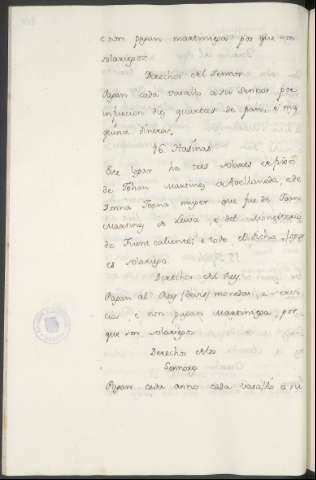 e non pagan martiniega por que son
solariegos.
Derechos del Sennor
Pagan cada vasallo a su sennor por
infurcion diez quartas de pan, e
dineros.
96. Hasinas.
Este logar ha tres solares e
de Johan Martinez de Avellaneda, e de
Donna Joana muger que fue de Joan
Martinez de Leiva, e del Monesterio
de Fuent caliente; e todo el dicho logar
es solariego.
Derechos del Rey.
Pagan al Rey monedas, e servi
cios e non pagan martiniega, por
que son solariegos
Derechos de los
Sennores
Pagan cada anno cada vasallo a su